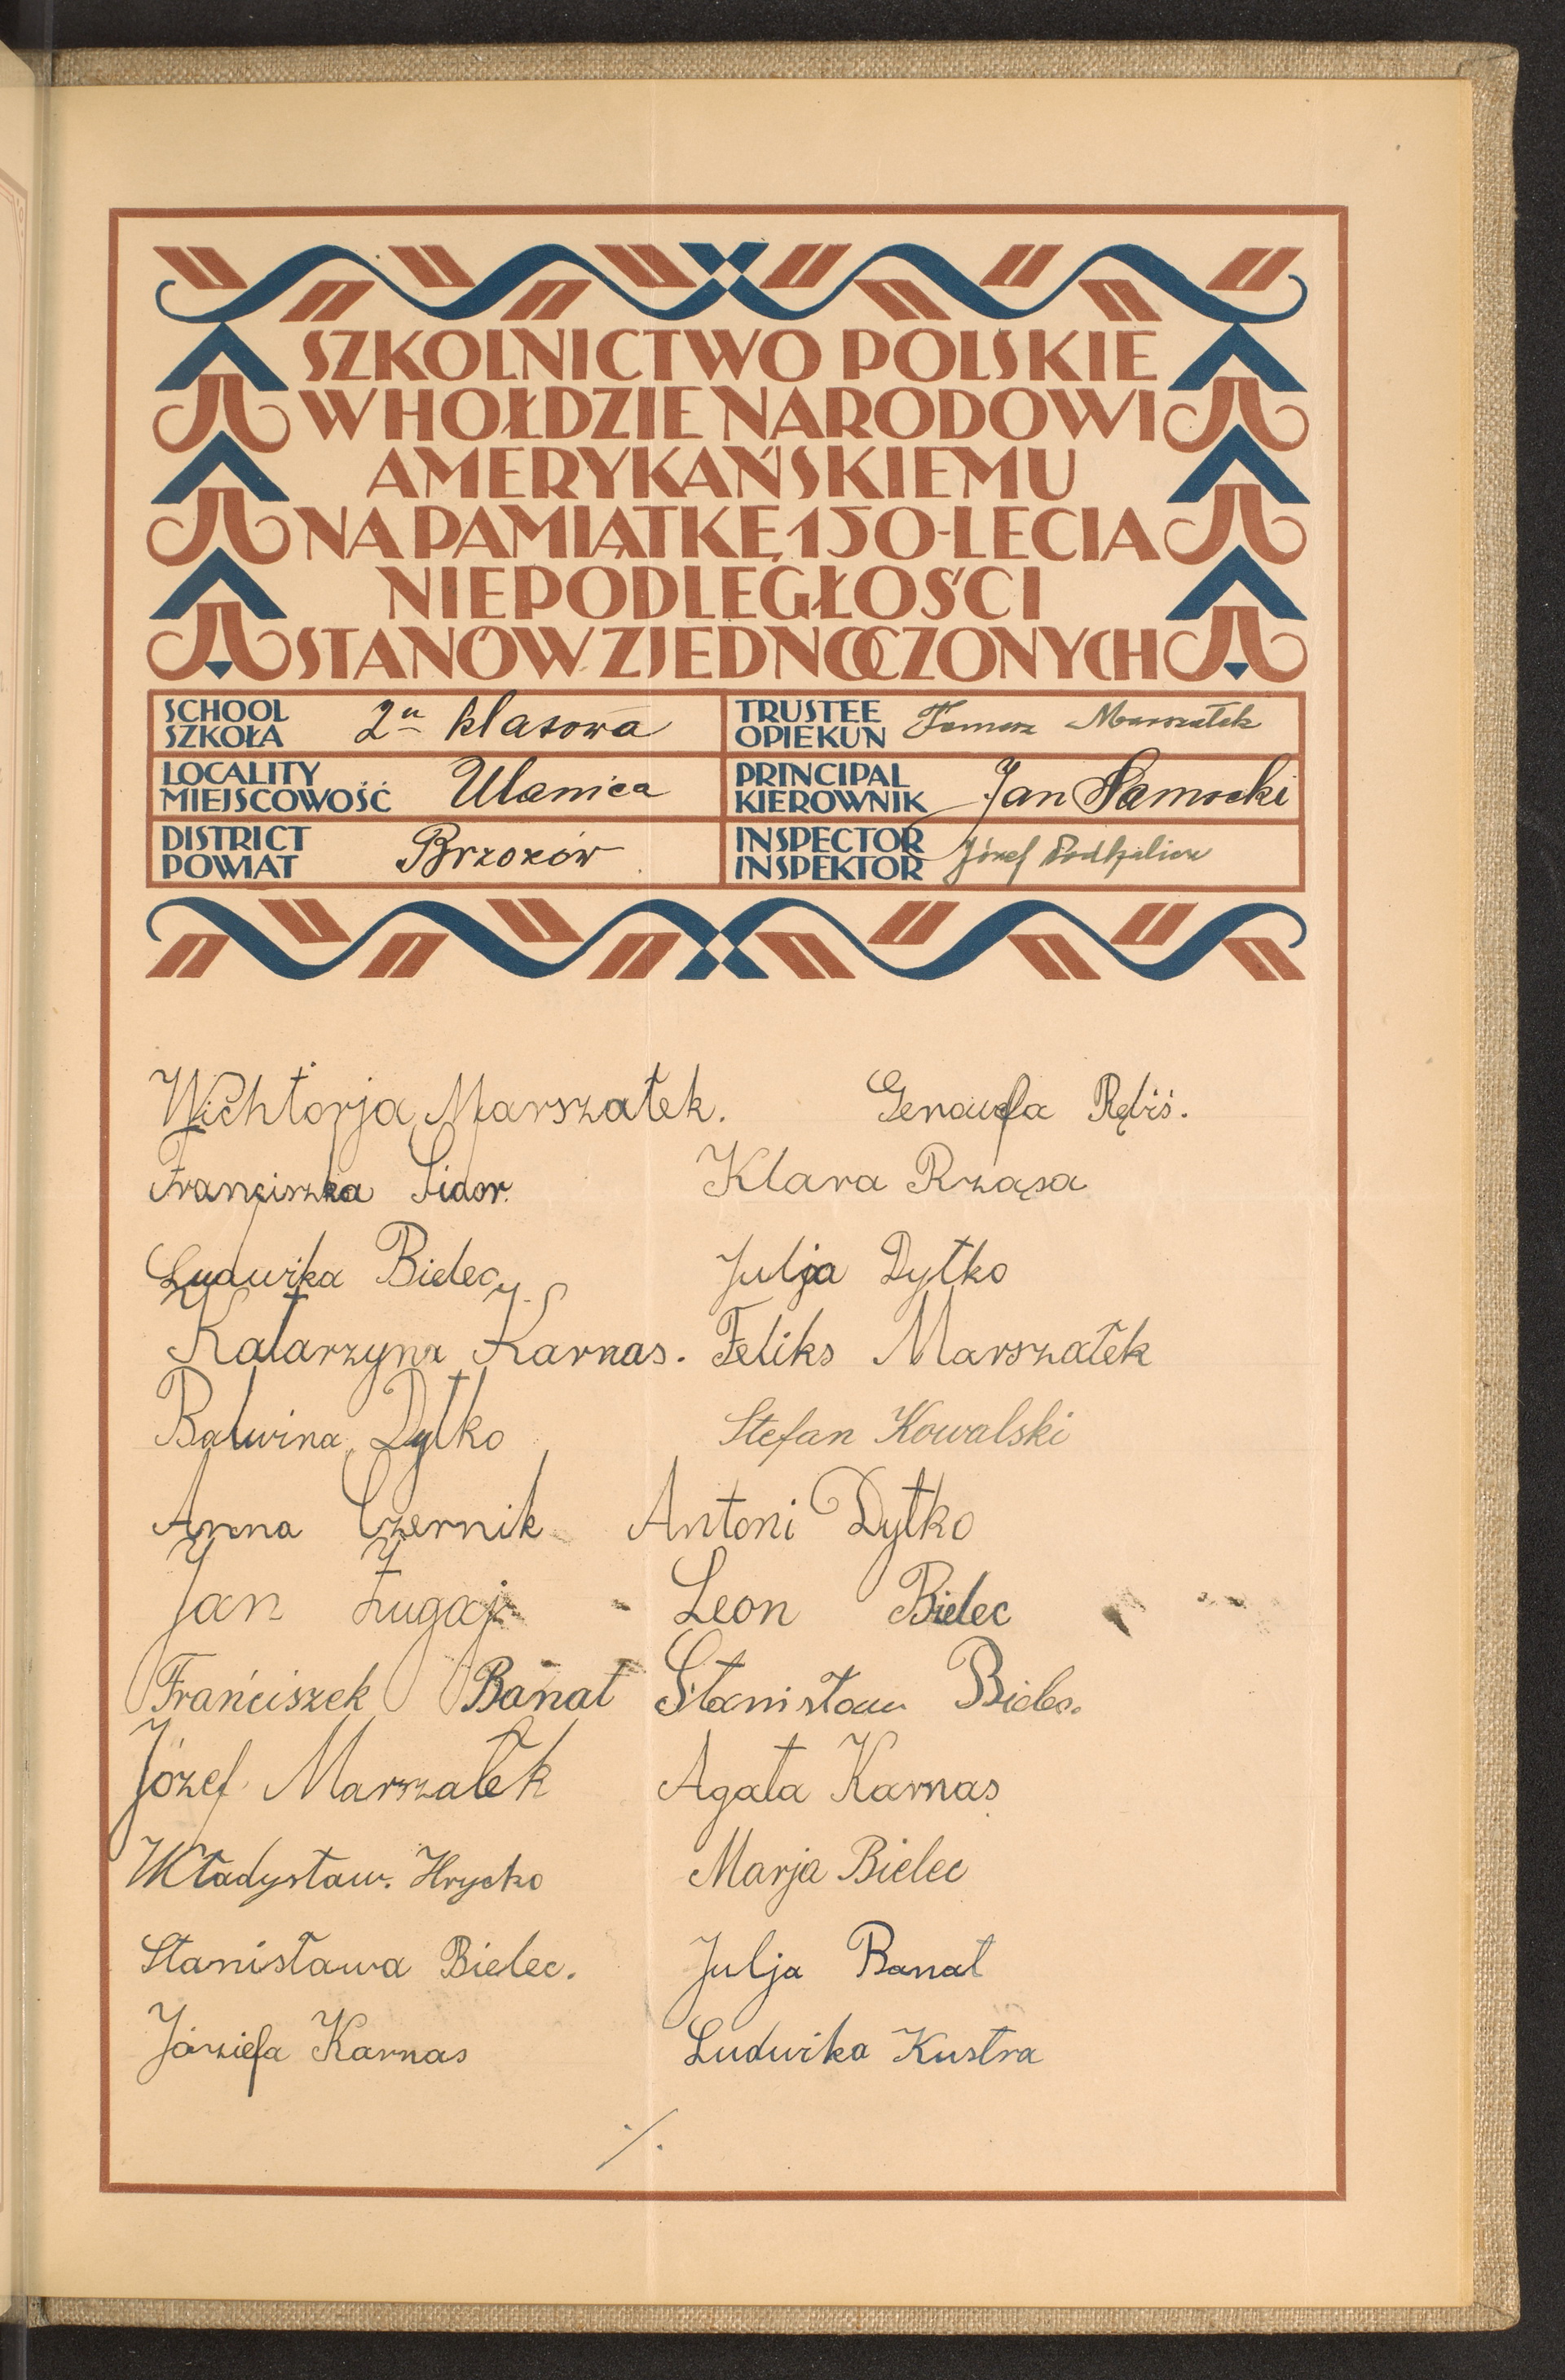 SZKOLNICTWO POLSKIE
W HOŁDZIE NARODOWI
AMERYKAŃSKIEMU
NA PAMIĄTKĘ 150-LECIA
NIEPODLEGŁOŚCI
STANÓW ZJEDNOCZONYCH
SCHOOL
SZKOŁA
2u klasowa
TRUSTEE
OPIEKUN
Tomasz Marszałek
LOCALITY
MIEJSCOWOŚĆ
Ulanica
PRINCIPAL
KIEROWNIK
Jan
DISTRICT
POWIAT
Brzozów
INSPECTOR
INSPEKTOR
Józef
Wichtorja Marszałek. Genowefa Rębiś.
Franciszka Sidor. Klara Rząsa
Ludwika Bielec Julja Dytko
Katarzyna Karnas. Feliks Marszałek
Balwina Dytko Stefan Kowalski
Anna Czernik Antoni Dytko
Jan Żugaj Leon Bielec
Franciszek Banat Stanisław Bielec.
Józef Marszałek Agata Karnas
Władysław. Hrycko Marja Bielec
Stanisława Bielec. Julja Banat
Józiefa Karnas Ludwika Kustra
./.